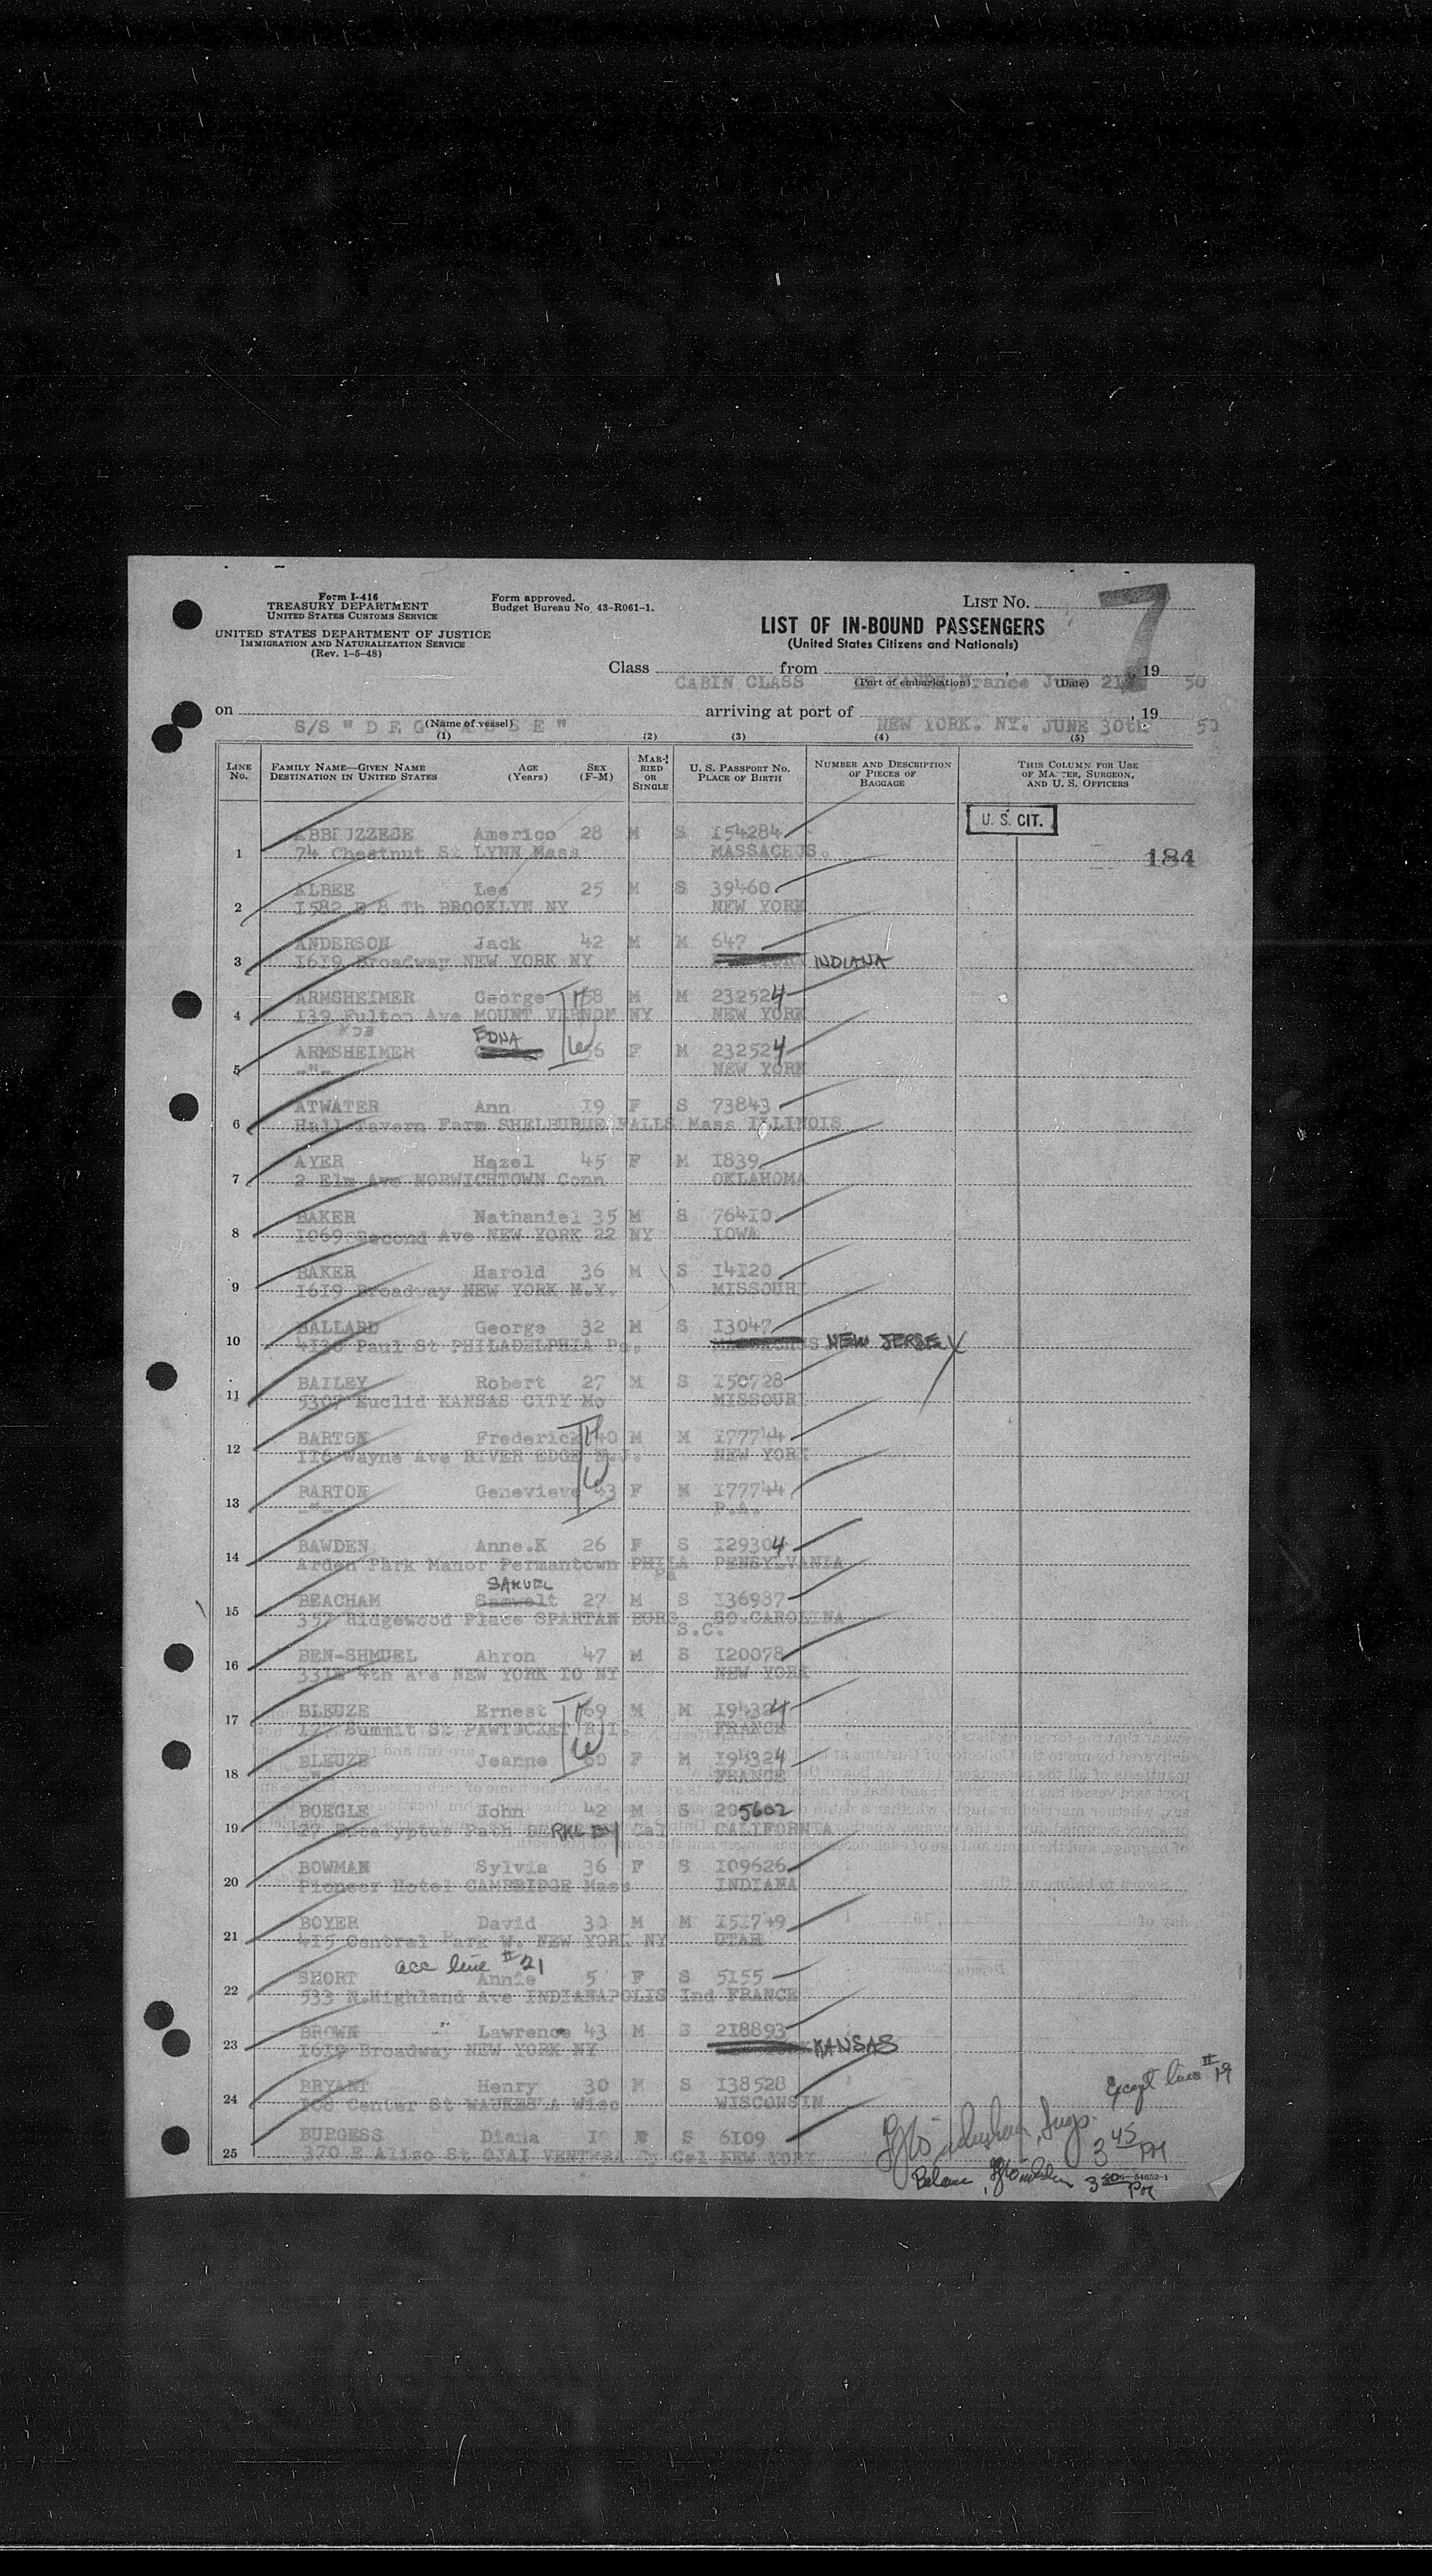 Form I-416
TREASURY DEPARTMENT
UNITED STATES CUSTOMS SERVICE
Form approved.
Budget Bureau No. 43-R061-1.
LIST No. 7
UNITED STATES DEPARTMENT OF JUSTICE
IMMIGRATION AND NATURALIZATION SERVICE
(Rev. 1-5-48)
LIST OF IN-BOUND PASSENGERS
(United States Citizens and Nationals)
Class CABIN CLASS from France June 21, 1950
(Port of embarkation) (Date)
on S/S "DE GRASSE" arriving at port of NEW YORK. NY. JUNE 30th, 1950
(Name of vessel)
(1) (2) (3) (4) (5)
LINE No. FAMILY NAME—GIVEN NAME DESTINATION IN UNITED STATES AGE (Years) SEX (F-M) MARRIED OR SINGLE U. S. PASSPORT No. PLACE OF BIRTH NUMBER AND DESCRIPTION OF PIECES OF BAGGAGE THIS COLUMN FOR USE OF MASTER, SURGEON, AND U. S. OFFICERS
U. S. CIT.
ABBRUZZESE Americo 28 M S I54284
1 74 Chestnut St LYNN Mass MASSACHUS. 184
ALBEE Lee 25 M S 39460
2 I582 E 8 Th BROOKLYN NY NEW YORK
ANDERSON Jack 42 M M 647
3 I6I9 Broadway NEW YORK NY INDIANA
ARMSHEIMER George 58 M M 232524
4 I39 Fulton Ave MOUNT VERNON NY NEW YORK
ARMSHEIMER EDNA 56 F M 232524
5 -"- NEW YORK
ATWATER Ann I9 F S 73843
6 Hall Tavern Farm SHELBURNE FALLS Mass ILLINOIS
AYER Hazel 45 F M I839
7 2 Elm Ave NORWICHTOWN Conn OKLAHOMA
BAKER Nathaniel 35 M S 764I0
8 I069 Second Ave NEW YORK 22 NY IOWA
BAKER Harold 36 M S I4I20
9 I6I9 Broadway NEW YORK N.Y. MISSOURI
BALLARD George 32 M S I3047
10 4I38 Paul St PHILADELPHIA Pa. NEW JERSEY
BAILEY Robert 27 M S I50728
11 5307 Euclid KANSAS CITY Mo MISSOURI
BARTON Frederick 40 M M I77744
12 II6 Wayne Ave RIVER EDGE N.J. NEW YORK
BARTON Genevieve 43 F M I77744
13 -"- P.A.
BAWDEN Anne.K 26 F S I29304
14 Arden Park Manor Permantown PHILA Pa PENSYLVANIA
SAMUEL
BEACHAM Samuelt 27 M S I36987
15 357 Ridgewood Place SPARTAN BURG S.C. SO.CAROLINA
BEN-SHMUEL Ahron 47 M S I20078
16 4th Ave NEW YORK I0 NY NEW YORK
BLEUZE Ernest 69 M M I94324
17 Summit St PAWTUCKET R.I. FRANCE
BLEUZE Jeanne 60 F M I94324
18 -"- FRANCE
BOEGLE John 42 M S 205602
19 27 Eucalyptus Path BERKLEY Cal CALIFORNIA
BOWMAN Sylvia 36 F S I09626
20 Pioneer Hotel CAMBRIDGE Mass INDIANA
BOYER David 30 M M I51749
21 4I5 Central Park W. NEW YORK NY UTAH
acc line #21
SHORT Annie 5 F S 5I55
22 533 N.Highland Ave INDIANAPOLIS Ind FRANCE
BROWN Lawrence 43 M S 2I8893
23 I6I9 Broadway NEW YORK NY KANSAS
BRYANT Henry 30 M S I38528
24 Center St WAUKESHA Wisc WISCONSIN
Except line #19
BURGESS Diana F S 6I09
25 370 E Aliso St OJAI VENTURA Co Cal NEW YORK
3 45 PM
3 30 PM
16—54652-1